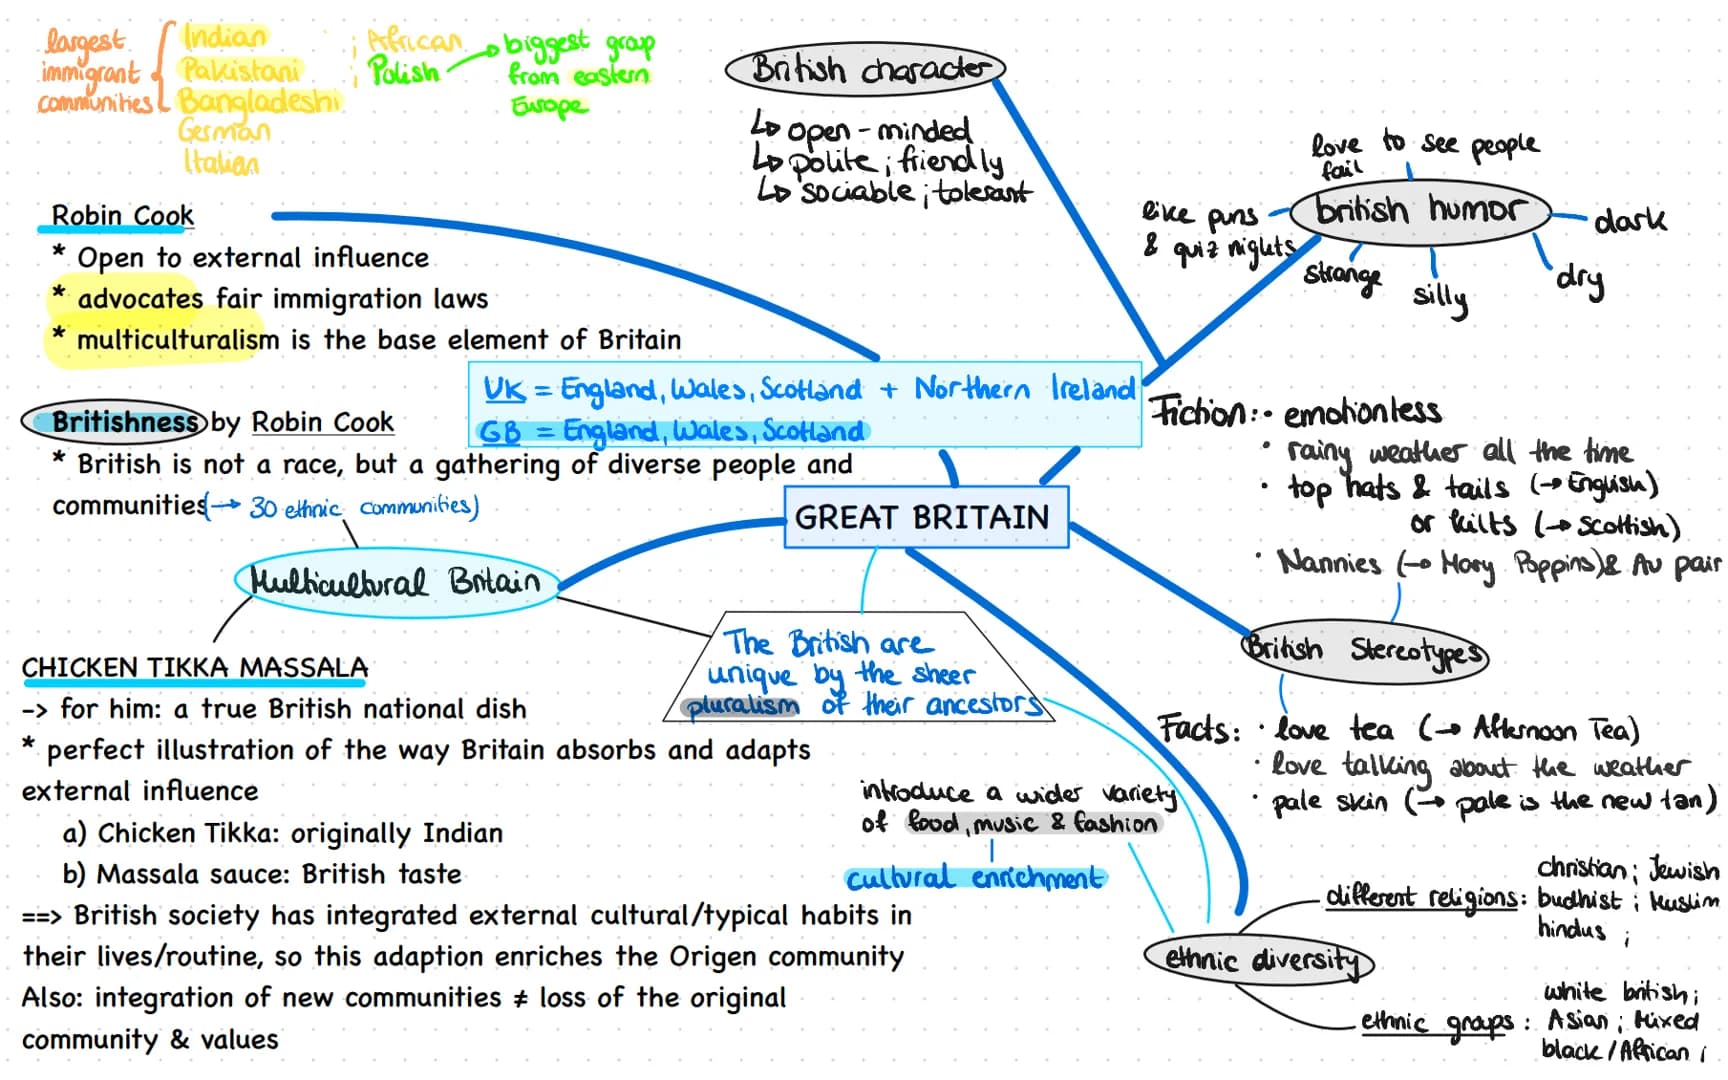 largest
immigrant
communities
Indian
Pakistani
Bangladeshi
German
Italian
; African
; Polish
biggest group
from eastern
Europe
British character
↳ open-minded
↳ polite ; friendly
↳ sociable ; tolerant
love to see people
fail
british humor
like puns
& quiz nights
strange
silly
dry
dark
Robin Cook
* Open to external influence
* advocates fair immigration laws
* multiculturalism is the base element of Britain
UK = England, Wales, Scotland + Northern Ireland
GB = England, Wales, Scotland
Britishness by Robin Cook
* British is not a race, but a gathering of diverse people and
communities (→ 30 ethnic communities)
GREAT BRITAIN
Fiction: • emotionless
• rainy weather all the time
• top hats & tails (→ English)
or kilts (→ Scottish)
• Nannies (→ Mary Poppins) & Au pair
British Stereotypes
Facts: • love tea (→ Afternoon Tea)
• love talking about the weather
• pale skin (→ pale is the new tan)
Multicultural Britain
The British are
unique by the sheer
pluralism of their ancestors
CHICKEN TIKKA MASSALA
-> for him: a true British national dish
* perfect illustration of the way Britain absorbs and adapts
external influence
a) Chicken Tikka: originally Indian
b) Massala sauce: British taste
==> British society has integrated external cultural/typical habits in
their lives/routine, so this adaption enriches the Origen community
Also: integration of new communities ≠ loss of the original
community & values
introduce a wider variety
of food, music & fashion
cultural enrichment
ethnic diversity
different religions:
christian ; Jewish
budhist ; Muslim
hindus ;
ethnic groups :
white british ;
Asian ; Mixed
black / African ;